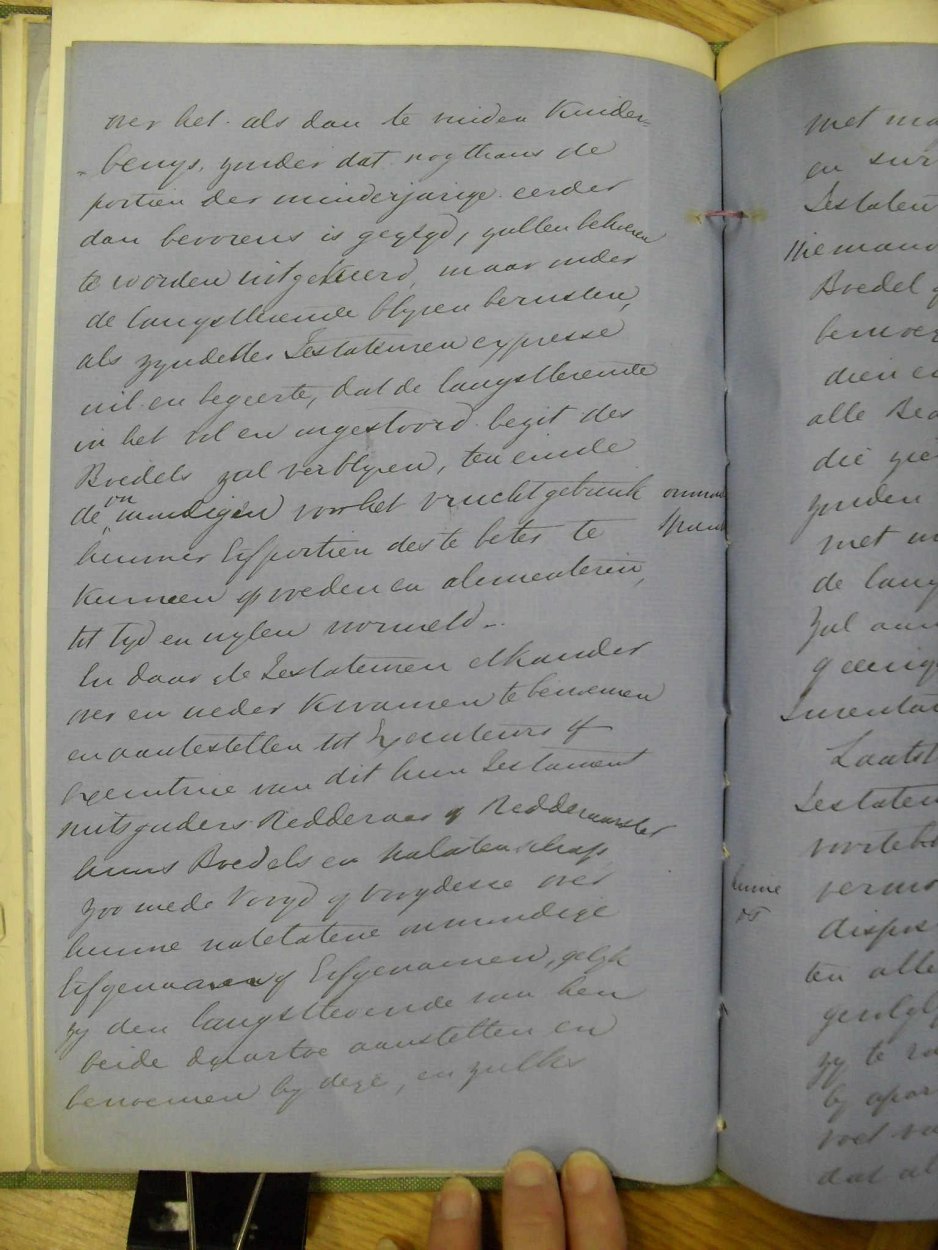 over het als dan te vinden Kinder=
=bewys, zonder dat nogthans de
portien der minderjarige eerder
dan bevorens is gezegd, zullen behoeven
te worden uitgekeerd, maar onder
de langstlevende blyven berusten,
als zynde der Testateuren expresse
wil en begeerte, dat de langstlevende
in het vol en ongestoord bezit des
Boedels zal verblyven, ten einde
de on mundigen voor het vruchtgebruik
hunner Erfportien des te beter te
kunnen opvoeden en alimenteren,
tot tyd en wylen voormeld..
En daar de Testateuren elkander
over en weder kwamen te benoemen
en aantestellen tot Executeurs of
Executrice van dit hun Testament
mitsgaders Redderaar of Redderaarster
huns Boedels en Nalatenschap
zoo mede Voogd of Voogdesse over
hunne natelatene onmundige
Erfgenaam of Erfgenamen, gelyk
zy den langstlevende van hen
beide daartoe aanstellen en
benoemen by deze, en zulks
met
en
Testateur
Niemand
Boedel
dien
alle
die
zonder
met
de lang
Zal aan
Laatst
hunne
ten alle
zy te
dat al